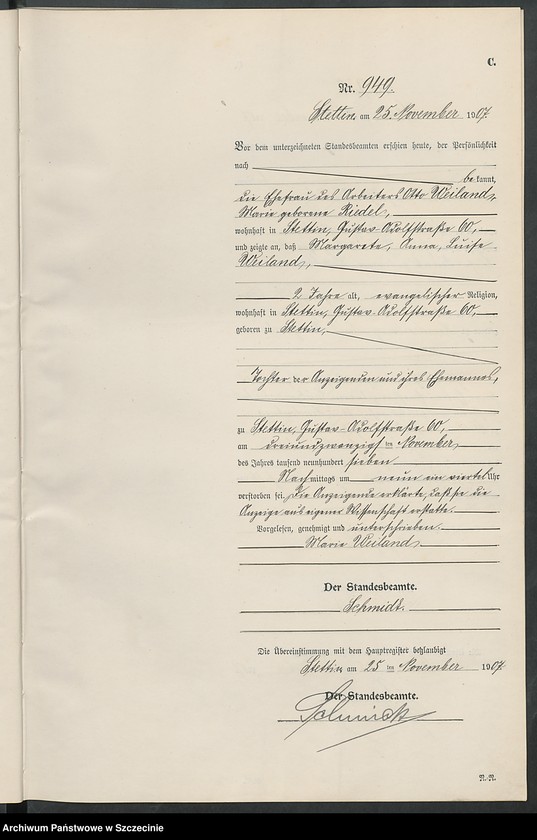 C.
Nr. 949.
Stettin, am 25. November 1907.
Vor dem unterzeichneten Standesbeamten erschien heute, der Persönlichkeit
nach
be kannt,
die Ehefrau des Arbeiters Otto Weiland,
Marie geborene Riedel,
wohnhaft in Stettin, Gustav-Adolfstraße 60,
und zeigte an, daß Margarete, Anna, Luise
Weiland,
2 Jahre alt, evangelischer Religion,
wohnhaft in Stettin, Gustav-Adolfstraße 60,
geboren zu Stettin,
Tochter der Anzeigenden und ihres Ehemannes,
zu Stettin, Gustav-Adolfstraße 60,
am dreiundzwanzigsten November
des Jahres tausend neunhundert sieben
Nachmittags um neun ein viertel Uhr
verstorben sei. Die Anzeigende erklärte, daß sie die
Anzeige aus eigener Wissenschaft erstatte.
Vorgelesen, genehmigt und unterschrieben.
Marie Weiland.
Der Standesbeamte.
Schmidt.
Die Übereinstimmung mit dem Hauptregister beglaubigt
Stettin, am 25 ten November 1907.
Der Standesbeamte.
Schmidt
N.N.
Archiwum Państwowe w Szczecinie